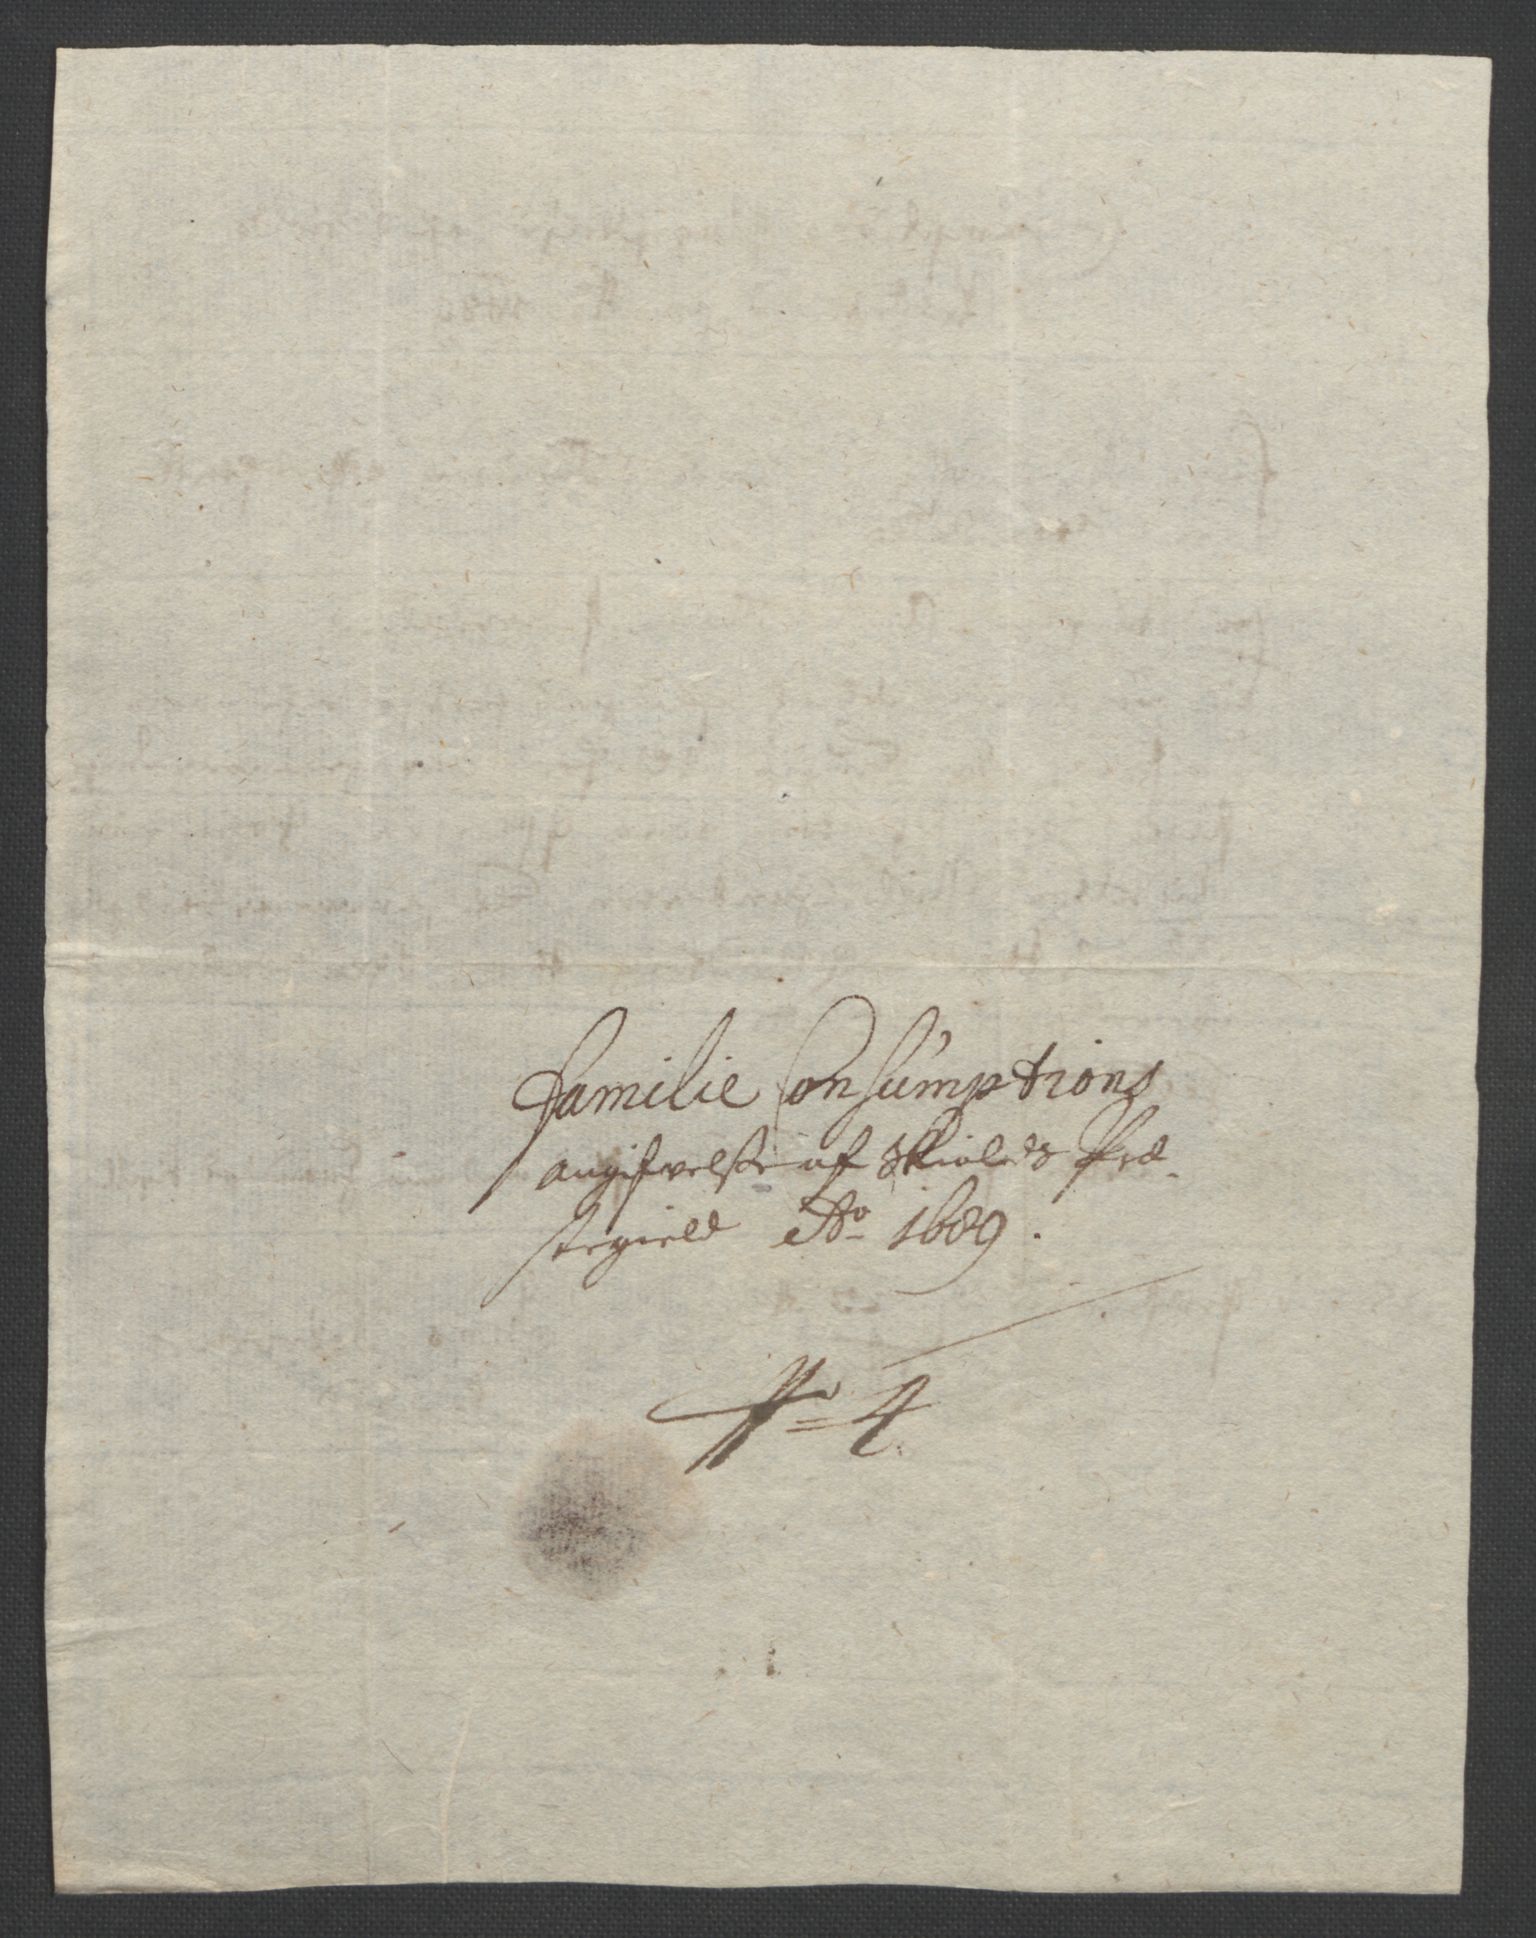 Familie Consumptions
angifvelsse af Skiolds Præ-
stegield Ao 1689.
No 4.